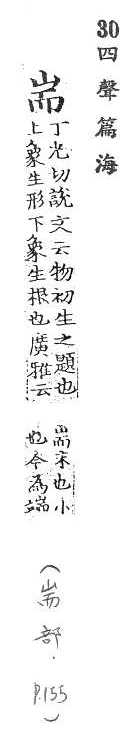 30四聲篇海
耑
丁光切說文云物初生之題也
上象生形下象生根也廣雅云
耑末也小
也今為端
(耑部.P.155)